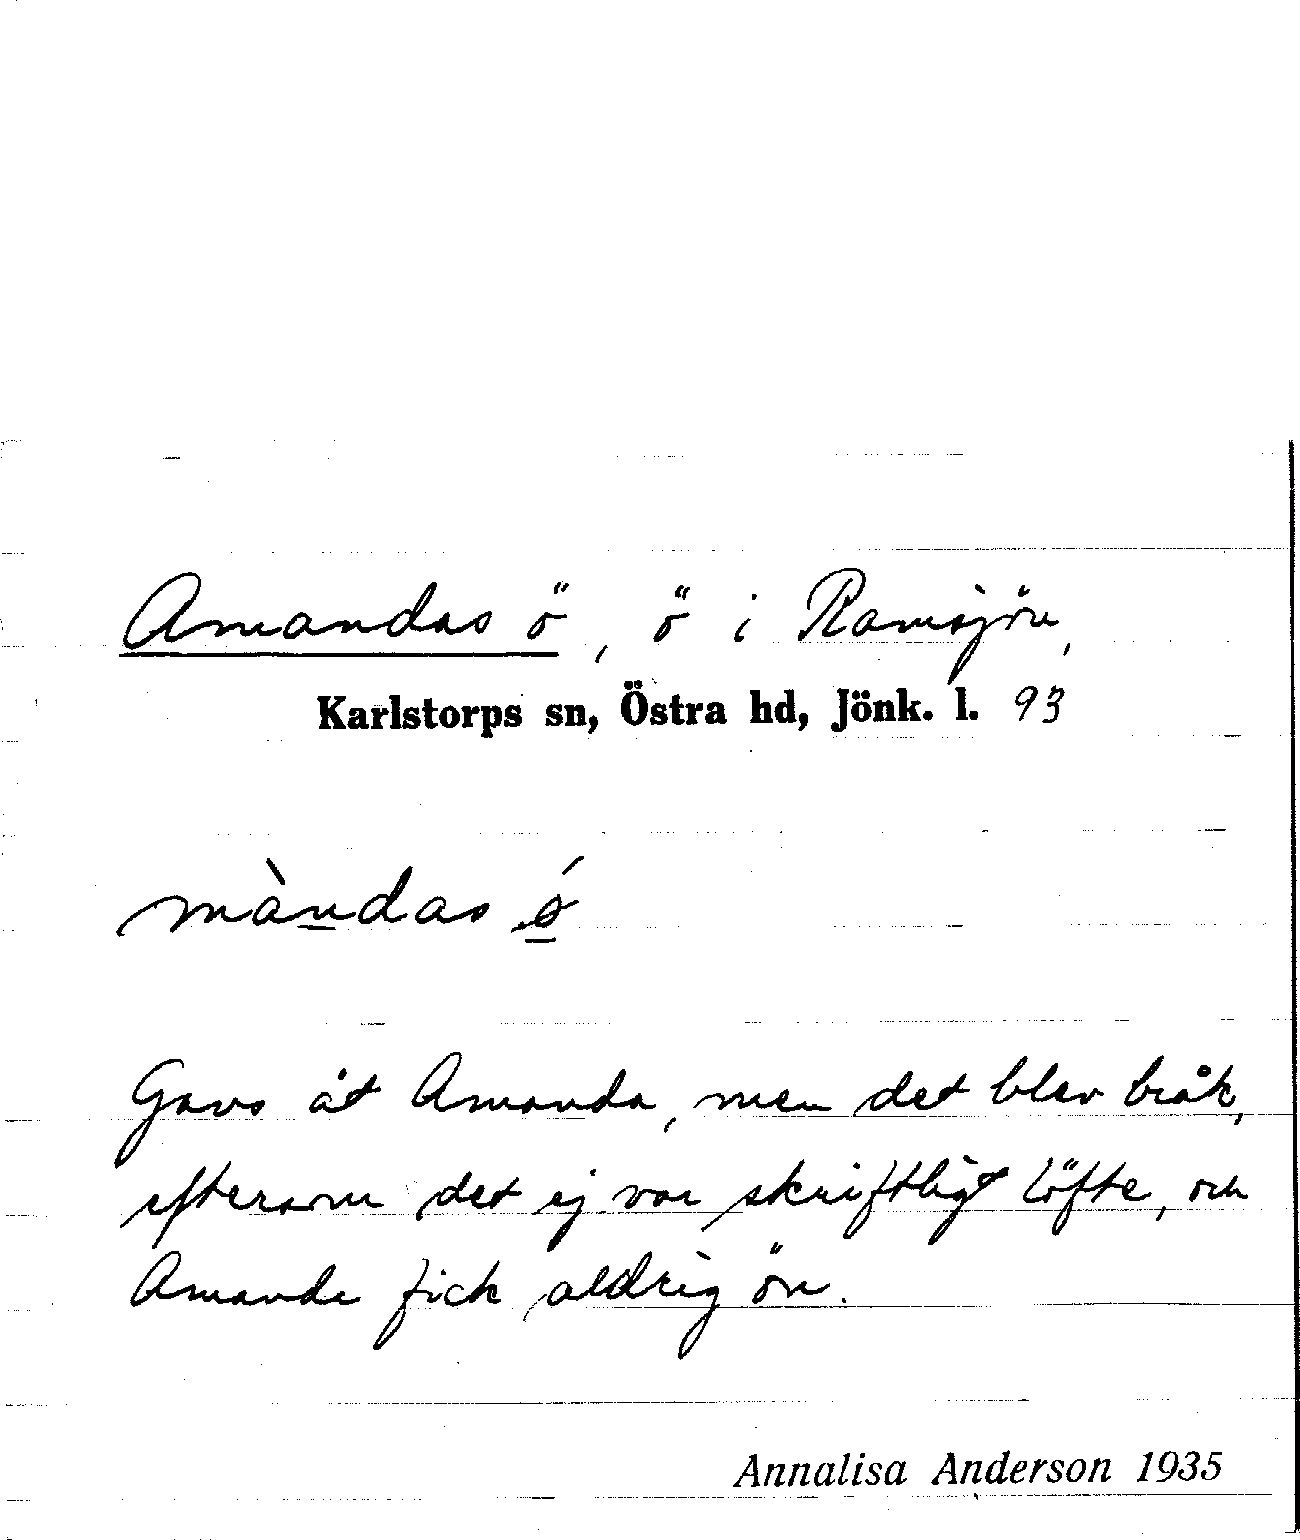 Amandas ö, ö i Ramsjön,
Karlstorps sn, Östra hd, Jönk. l. 93
màndas ǿ
Gavs åt Amanda, men det blev bråk,
eftersom det ej var skriftligt löfte, och
Amanda fick aldrig ön.
Annalisa Anderson 1935